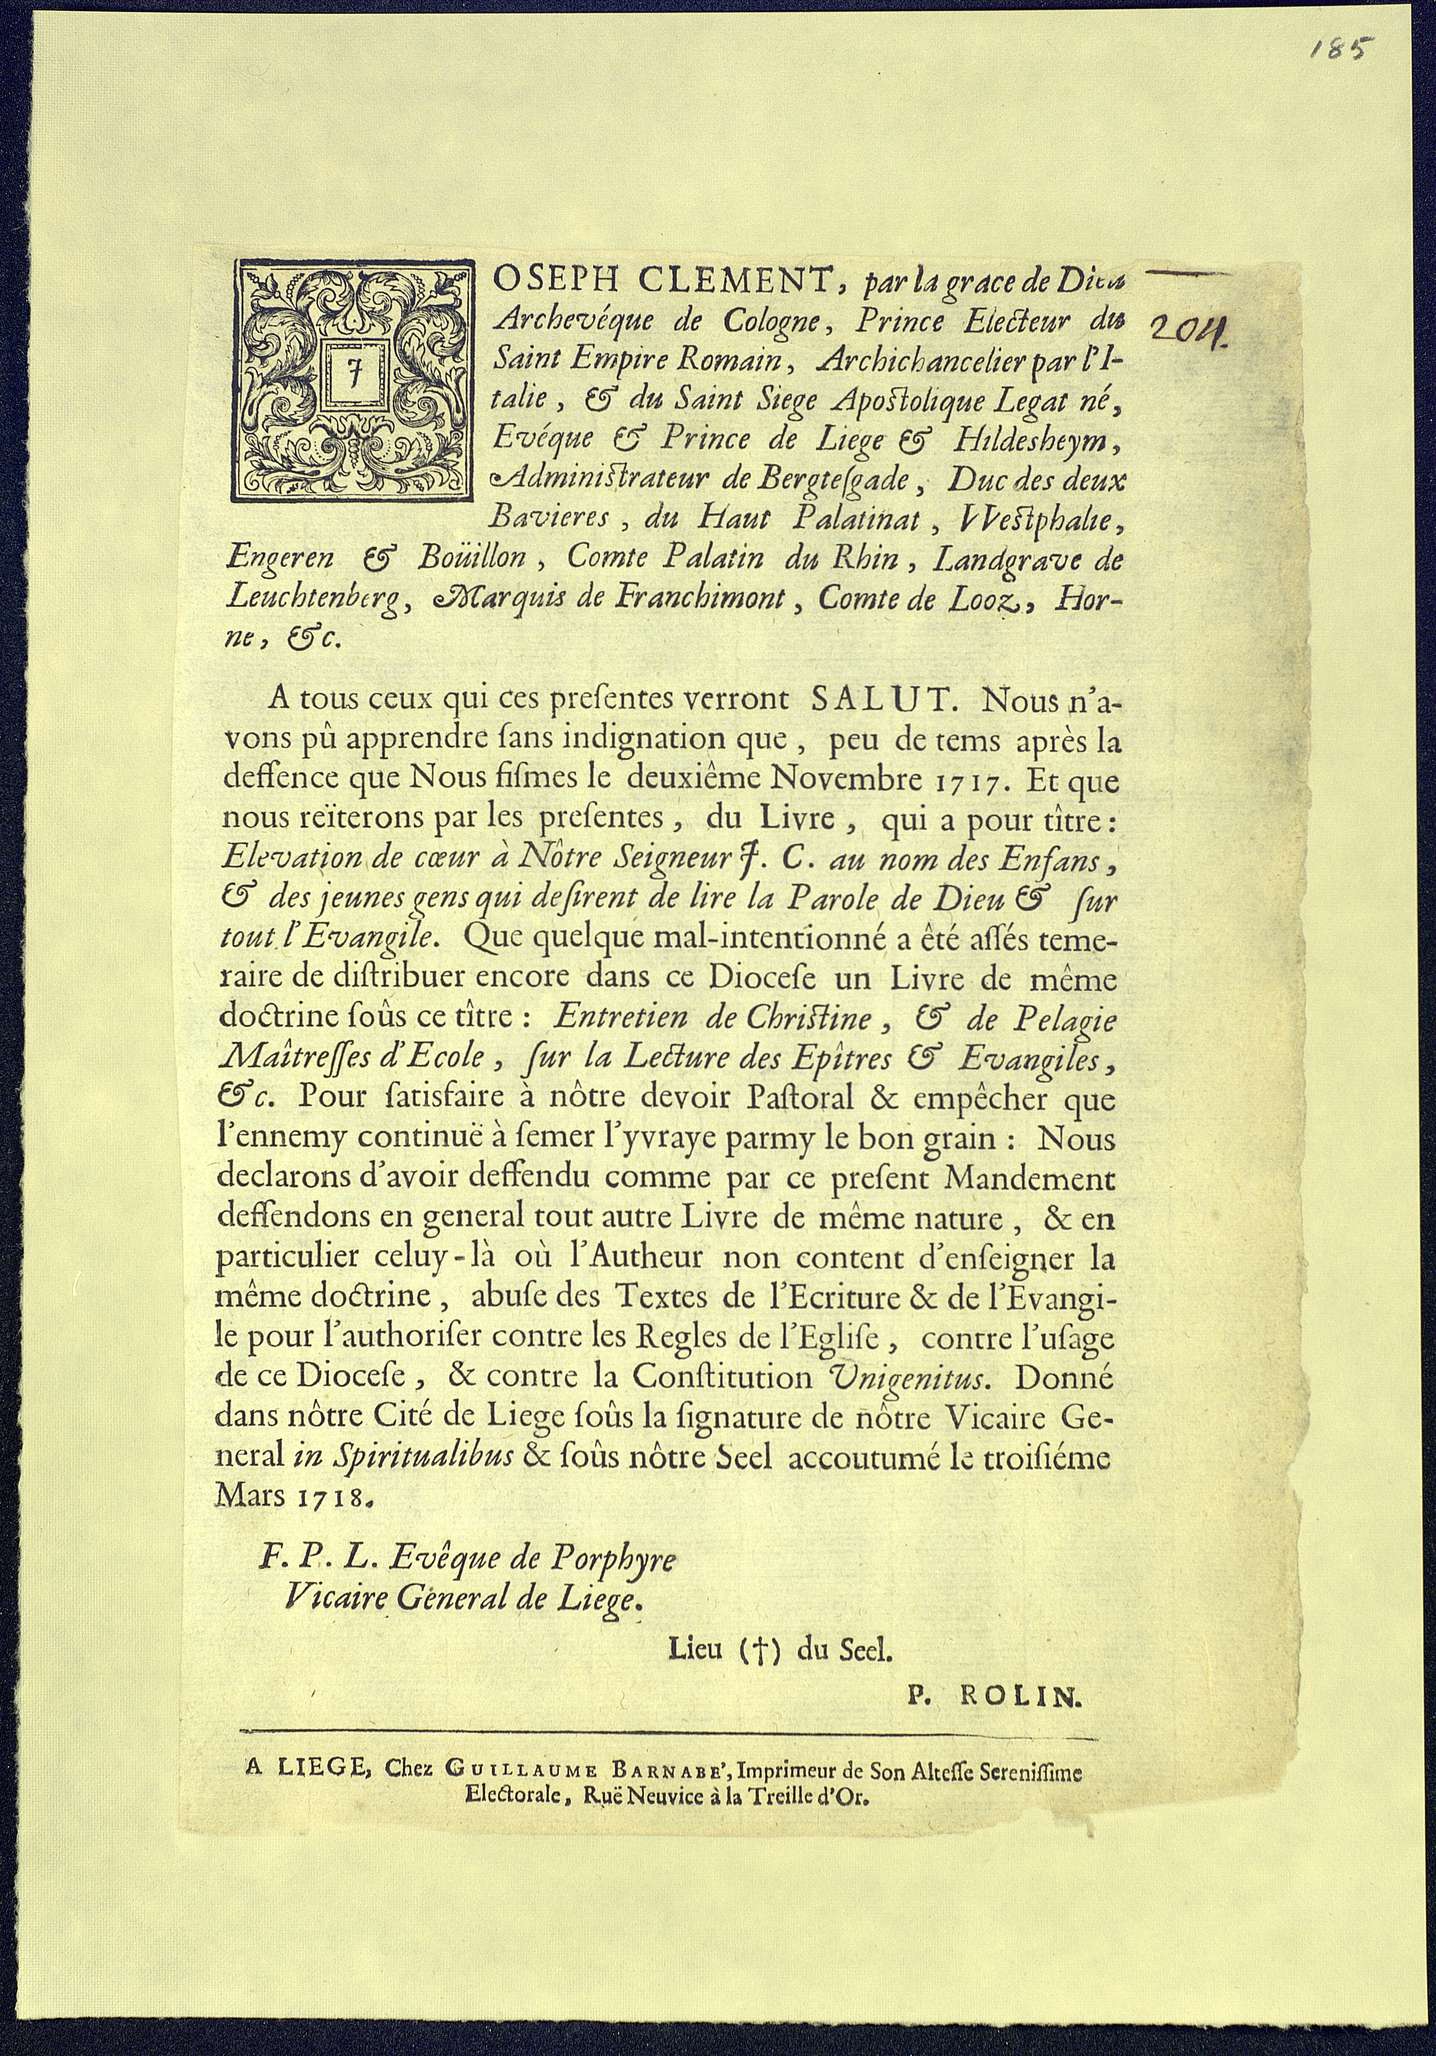 185
JOSEPH CLEMENT, par la grace de Dieu
204.
Archevéque de Cologne, Prince Electeur du
Saint Empire Romain, Archichancelier par l'I-
talie, & du Saint Siege Apostolique Legat né,
Evéque & Prince de Liege & Hildesheym,
Administrateur de Bergteſgade, Duc des deux
Bavieres, du Haut Palatinat, VVestphalie,
Engeren & Boüillon, Comte Palatin du Rhin, Landgrave de
Leuchtenberg, Marquis de Franchimont, Comte de Looz, Hor-
ne, &c.
A tous ceux qui ces preſentes verront SALUT. Nous n'a-
vons pû apprendre ſans indignation que, peu de tems après la
deffence que Nous fiſmes le deuxiême Novembre 1717. Et que
nous reïterons par les preſentes, du Livre, qui a pour tître:
Elevation de cœur à Nôtre Seigneur J. C. au nom des Enfans,
& des jeunes gens qui deſirent de lire la Parole de Dieu & ſur
tout l'Evangile. Que quelque mal-intentionné a êté aſſés teme-
raire de diſtribuer encore dans ce Dioceſe un Livre de même
doctrine ſoûs ce tître: Entretien de Christine, & de Pelagie
Maîtreſſes d'Ecole, ſur la Lecture des Epîtres & Evangiles,
&c. Pour ſatisfaire à nôtre devoir Paſtoral & empêcher que
l'ennemy continuë à ſemer l'yvraye parmy le bon grain: Nous
declarons d'avoir deffendu comme par ce preſent Mandement
deffendons en general tout autre Livre de même nature, & en
particulier celuy-là où l'Autheur non content d'enſeigner la
même doctrine, abuſe des Textes de l'Ecriture & de l'Evangi-
le pour l'authoriſer contre les Regles de l'Egliſe, contre l'uſage
de ce Dioceſe, & contre la Conſtitution Unigenitus. Donné
dans nôtre Cité de Liege ſoûs la ſignature de nôtre Vicaire Ge-
neral in Spiritualibus & ſoûs nôtre Seel accoutumé le troiſiéme
Mars 1718.
F. P. L. Evêque de Porphyre
Vicaire General de Liege.
Lieu (†) du Seel.
P. ROLIN.
A LIEGE, Chez GUILLAUME BARNABE', Imprimeur de Son Alteſſe Sereniſſime
Electorale, Ruë Neuvice à la Treille d'Or.